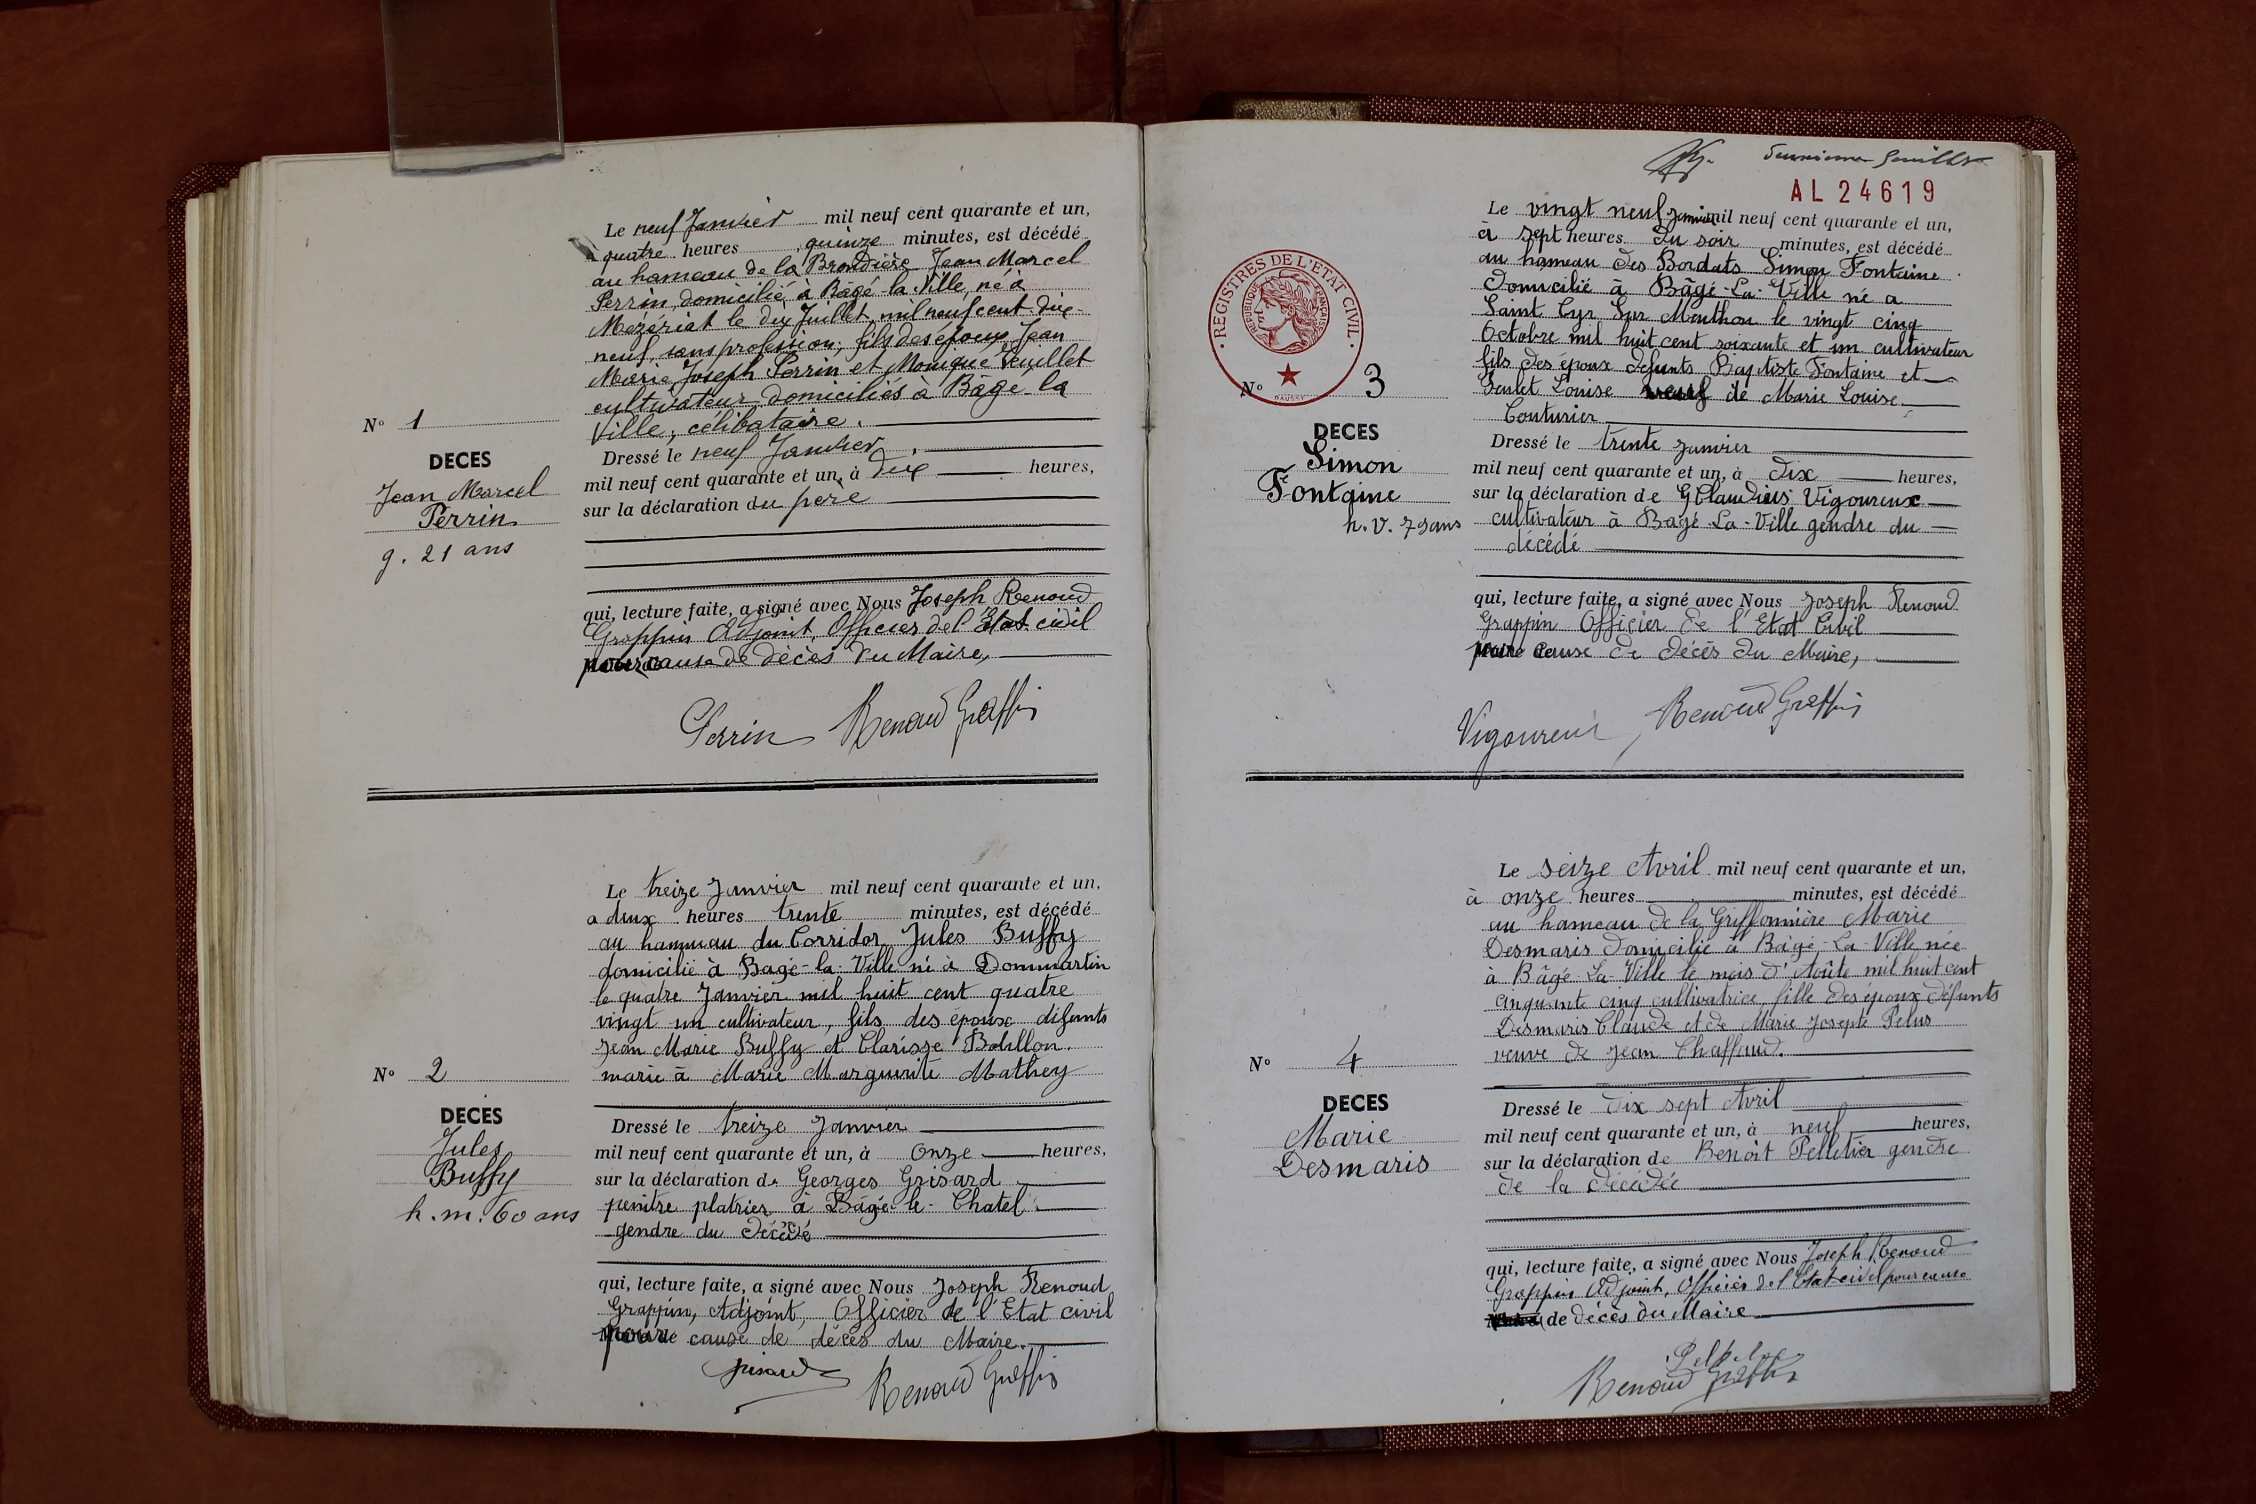 Le neuf Janvier mil neuf cent quarante et un,
à quatre heures quinze minutes, est décédé
au hameau de la Brondière Jean Marcel
Perrin, domicilié à Bâgé-la-Ville, né à
Mézériat le dix Juillet mil neuf cent dix-
neuf, sans profession, fils des époux Jean
Marie Joseph Perrin et Monique Feuillet
cultivateur domiciliés à Bâgé la
Ville, célibataire.
N° 1
DECES
Jean Marcel
Perrin
g. 21 ans
Dressé le neuf Janvier
mil neuf cent quarante et un, à dix heures,
sur la déclaration du père
qui, lecture faite, a signé avec Nous Joseph Renoud
Grappin Adjoint, Officier de l'État civil
pour cause de décès du Maire,
Perrin Renoud Graffin
Le treize Janvier mil neuf cent quarante et un,
a deux heures trente minutes, est décédé
au hameau du Corridor Jules Buffy
domicilié à Bagé-la-Ville né à Dommartin
le quatre Janvier mil huit cent quatre
vingt un cultivateur, fils des époux défunts
Jean Marie Buffy et Clarisse Bolillon.
marié à Marie Marguerite Mathey
N° 2
DECES
Jules
Buffy
h. m. 60 ans
Dressé le treize Janvier
mil neuf cent quarante et un, à onze heures,
sur la déclaration de Georges Grisard
peintre platrier à Bâgé-le-Chatel
gendre du décédé
qui, lecture faite, a signé avec Nous Joseph Renoud
Grappin, Adjoint, Officier de l'Etat civil
pour cause de décès du Maire.
Grisard Renoud Graffin
AL 24619
Le vingt neuf Janvier mil neuf cent quarante et un,
à sept heures du soir minutes, est décédé
au hameau des Bordats Simon Fontaine
Domicilié à Bâgé-La-Ville né a
Saint Cyr Sur Menthon le vingt cinq
Octobre mil huit cent soixante et un cultivateur
fils des époux défunts Baptiste Fontaine et
Louise veuf de Marie Louise
Couturier
REGISTRES DE L'ETAT CIVIL
REPUBLIQUE FRANÇAISE
N° 3
DECES
Simon
Fontaine
h. v. 79 ans
Dressé le trente janvier
mil neuf cent quarante et un, à dix heures,
sur la déclaration de Claudius Vigoureux
cultivateur à Bâgé-La-Ville gendre du
décédé
qui, lecture faite, a signé avec Nous Joseph Renoud
Grappin Officier de l'Etat Civil
pour cause de décès du Maire,
Vigoureux Renoud Graffin
Le seize Avril mil neuf cent quarante et un,
à onze heures minutes, est décédé
au hameau de la Griffonnière Marie
Desmaris domicilié à Bâgé-La-Ville née
à Bâgé-La-Ville le mois d'Août mil huit cent
cinquante cinq cultivatrice fille des époux défunts
Desmaris Claude et de Marie Josepte Pelus
veuve de Jean Chaffaud.
N° 4
DECES
Marie
Desmaris
Dressé le dix sept Avril
mil neuf cent quarante et un, à neuf heures,
sur la déclaration de Benoît Pelletier gendre
de la décédée
qui, lecture faite, a signé avec Nous Joseph Renoud
Grappin Adjoint, Officier de l'Etat civil pour cause
de décès du Maire
Pelletier
Renoud Graffin